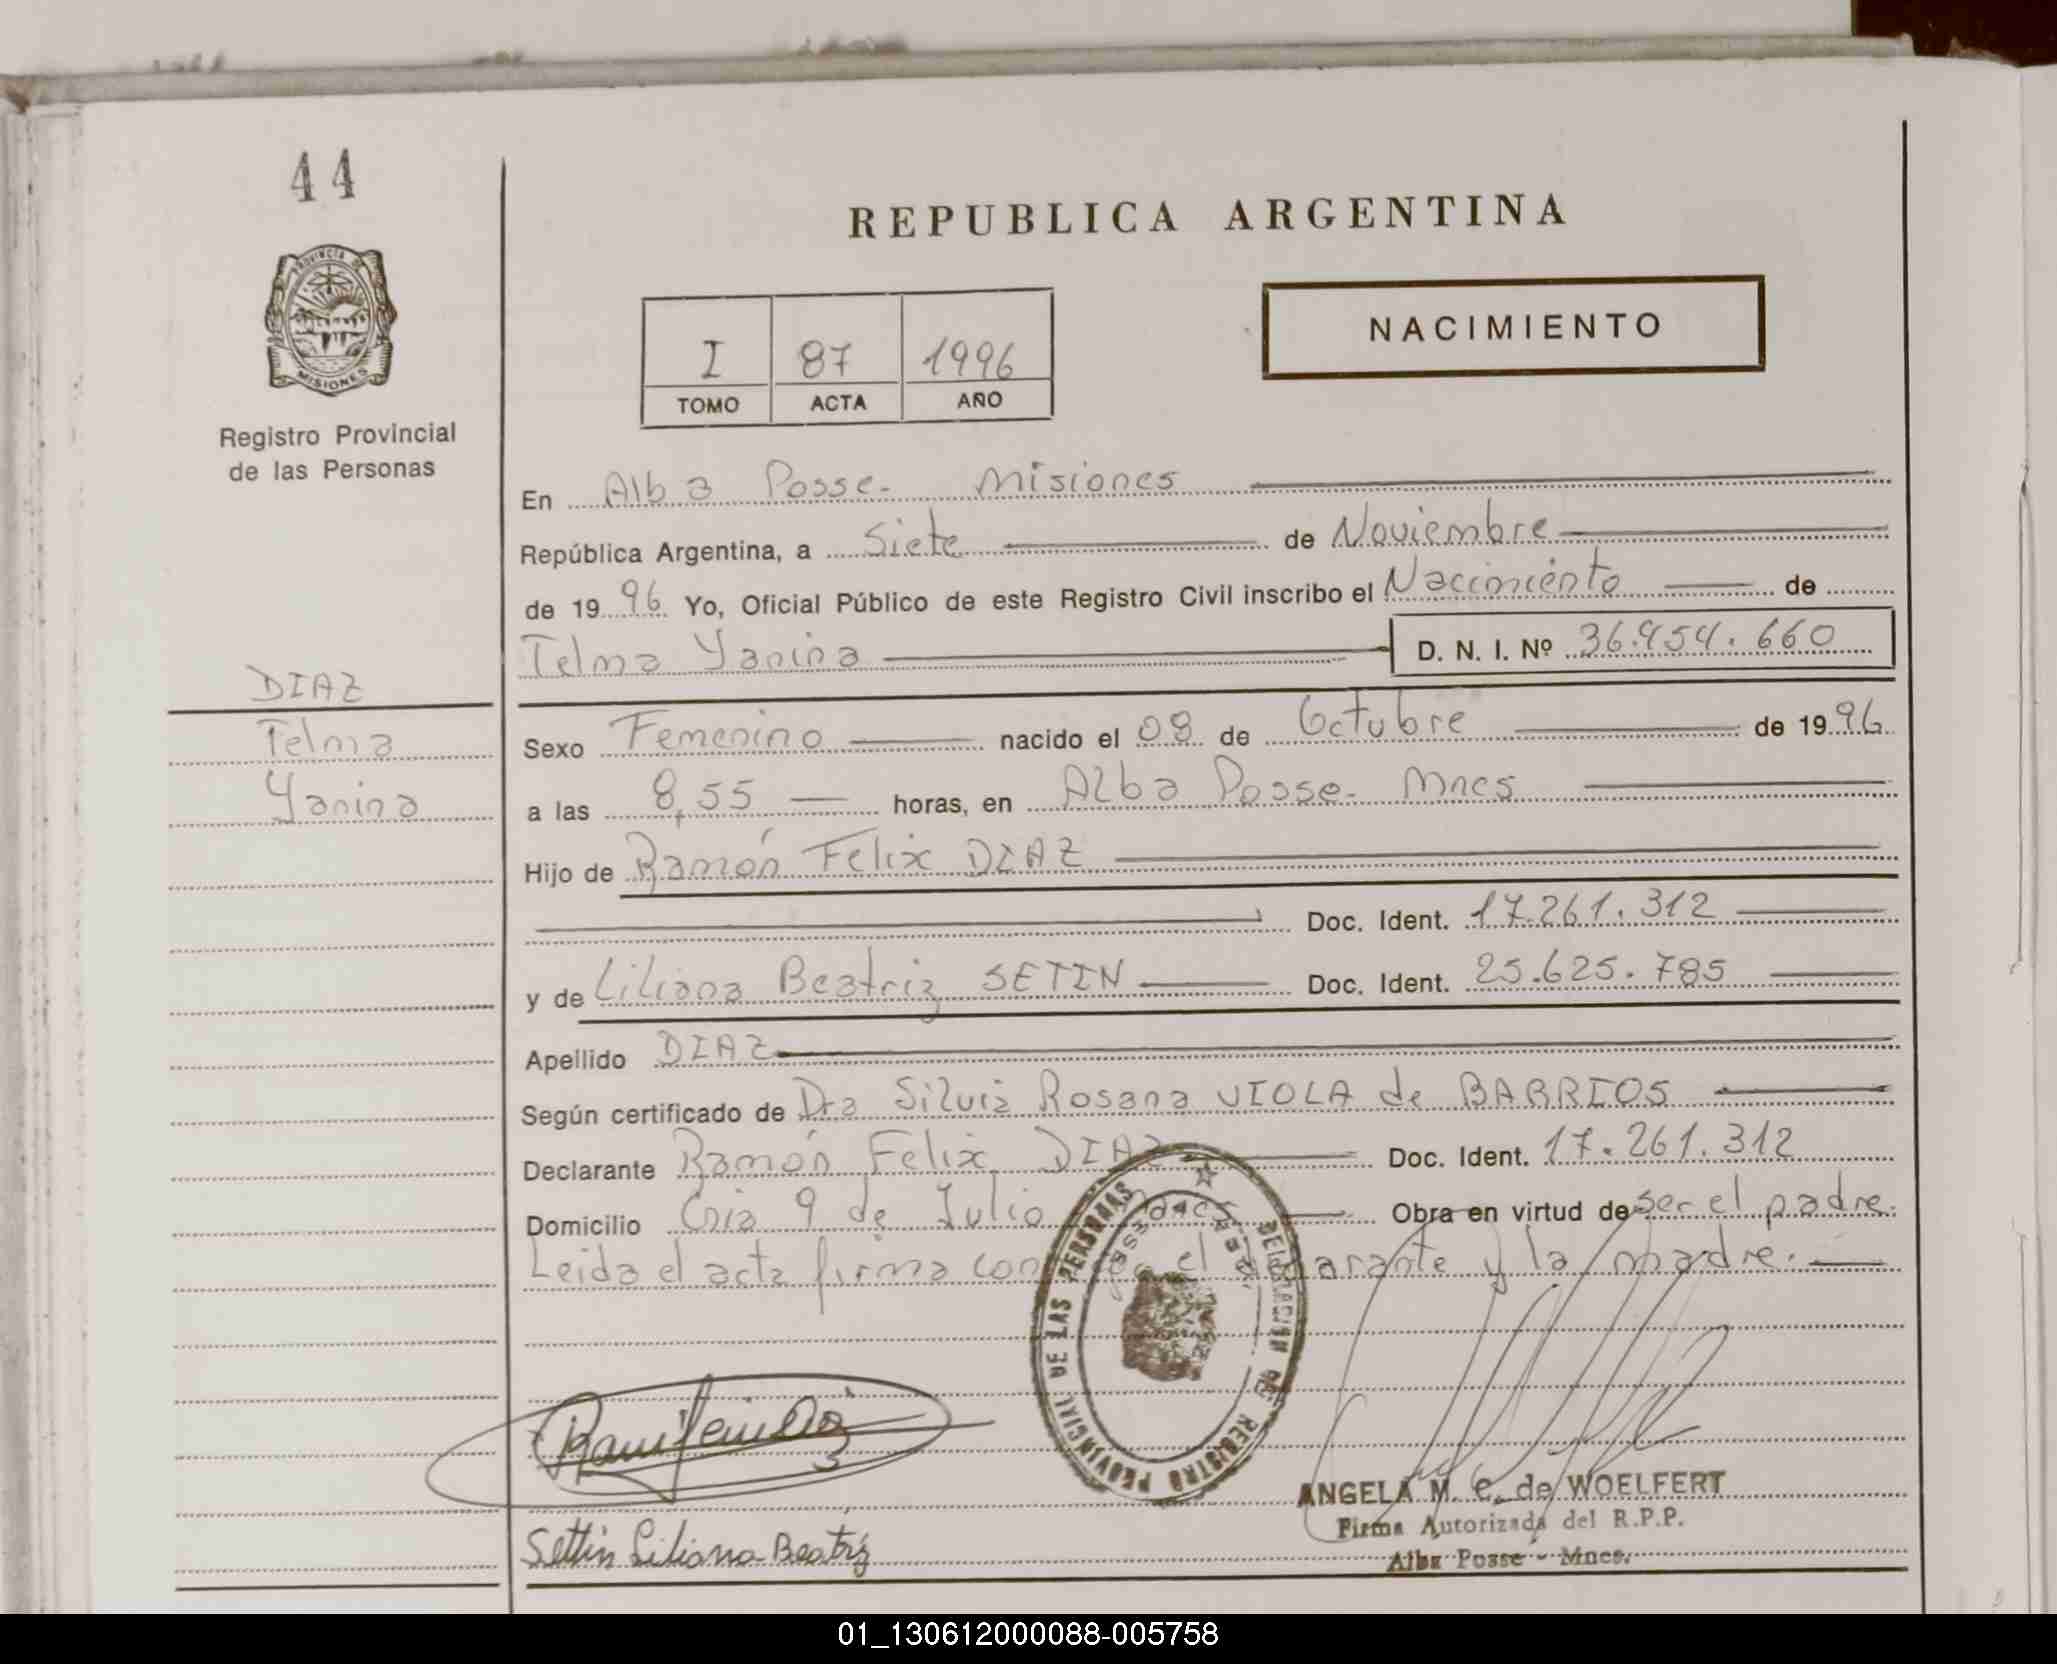 44
REPUBLICA ARGENTINA
PROVINCIA DE
MISIONES
NACIMIENTO
I 87 1996
TOMO ACTA AÑO
Registro Provincial
de las Personas
En Alba Posse- Misiones
República Argentina, a Siete de Noviembre
de 1996 Yo, Oficial Público de este Registro Civil inscribo el Nacimiento de
Telma Yanina D. N. I. Nº 36.454.660
DIAZ
Telma
Yanina
Sexo Femenino nacido el 08 de Octubre de 1996
a las 8,55 horas, en Alba Posse- Mnes
Hijo de Ramón Felix DIAZ
Doc. Ident. 17.261.312
y de Liliana Beatriz SETIN Doc. Ident. 25.625.785
Apellido DIAZ
Según certificado de Dra Silvia Rosana VIOLA de BARRIOS
Declarante Ramón Felix DIAZ Doc. Ident. 17.261.312
Domicilio Cnia 9 de Julio Mnes Obra en virtud de ser el padre.
Leida el acta firma con el declarante y la madre.
DELEGACION DE REGISTRO PROVINCIAL DE LAS PERSONAS
Settin Liliana Beatriz
ANGELA M. C. de WOELFERT
Firma Autorizada del R.P.P.
Alba Posse - Mnes.
01_130612000088-005758